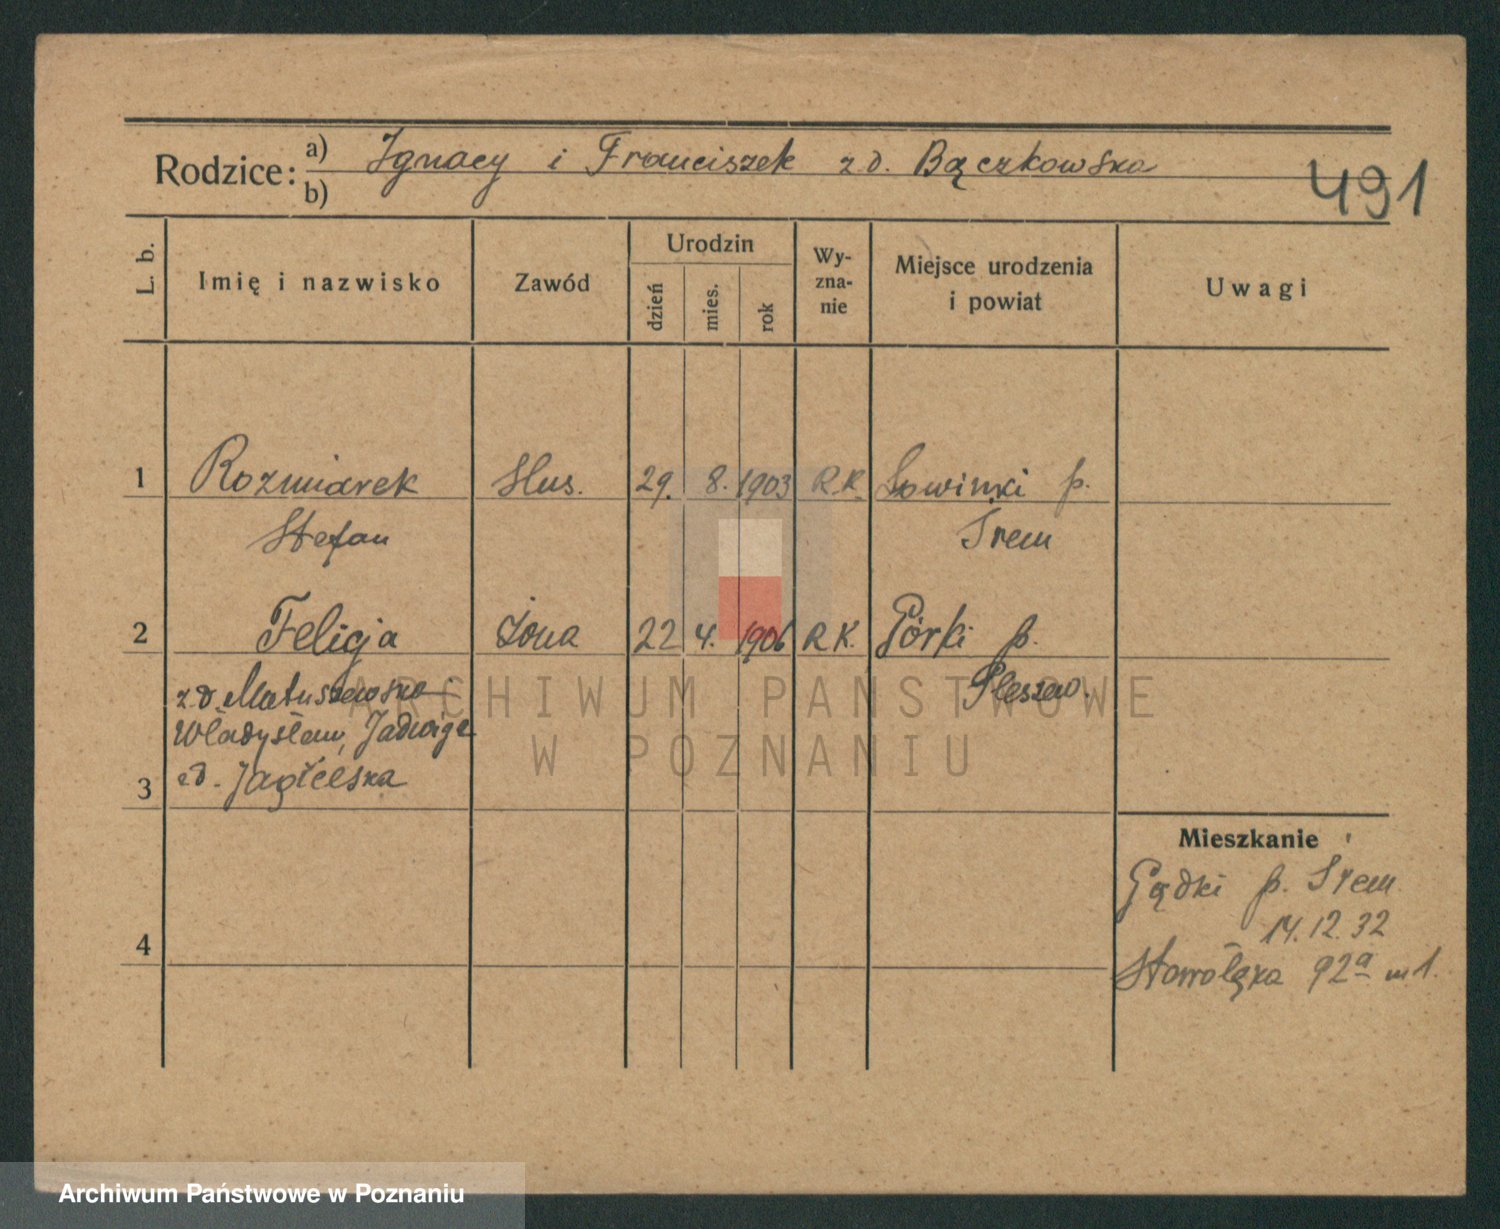 Rodzice: a) Ignacy i Franciszek z d. Bączkowska
b)
491
L. b.
Imię i nazwisko
Zawód
Urodzin
dzień
mies.
rok
Wy-
zna-
nie
Miejsce urodzenia
i powiat
Uwagi
1 Rozmiarek ślus. 29. 8. 1903 R.K. p.
Stefan Śrem
2 Felicja żona 22 4. 1906 R K. Górki p.
z d. Matuszewska Pleszew.
Władysław, Jadwiga
3 zd.
4
Mieszkanie
Gądki p. Śrem
14.12.32
Starołęka 92a m 1.
ARCHIWUM PAŃSTWOWE
W POZNANIU
Archiwum Państwowe w Poznaniu